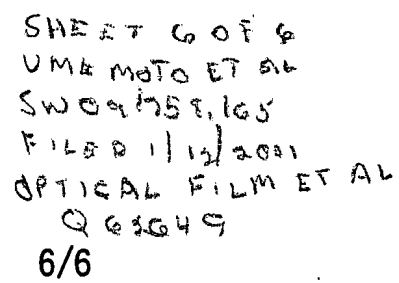 SHEET 6 OF 6
UMEMOTO ET AL
SN 09/758,165
FILED 1/12/2001
OPTICAL FILM ET AL
Q63649
6/6